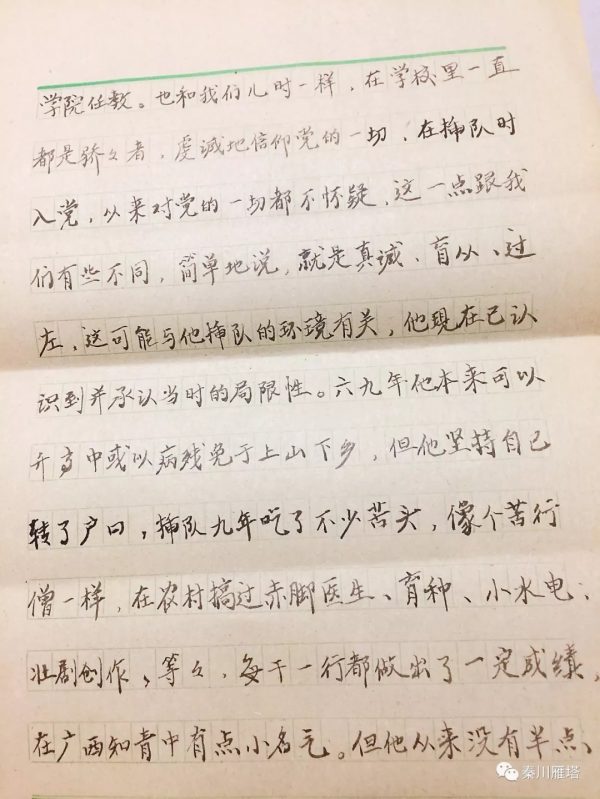 学院任教。也和我们儿时一样，在学校里一直
都是骄々者，虔诚地信仰党的一切，在插队时
入党，从来对党的一切都不怀疑，这一点跟我
们有些不同，简单地说，就是真诚、盲从、过
左，这可能与他插队的环境有关，他现在已认
识到并承认当时的局限性。六九年他本来可以
升高中或以病残免于上山下乡，但他坚持自己
转了户口，插队九年吃了不少苦头，像个苦行
僧一样，在农村搞过赤脚医生、育种、小水电；
壮剧创作，等々，每干一行都做出了一定成绩，
在广西知青中有点小名气。但他从来没有半点、
秦川雁塔